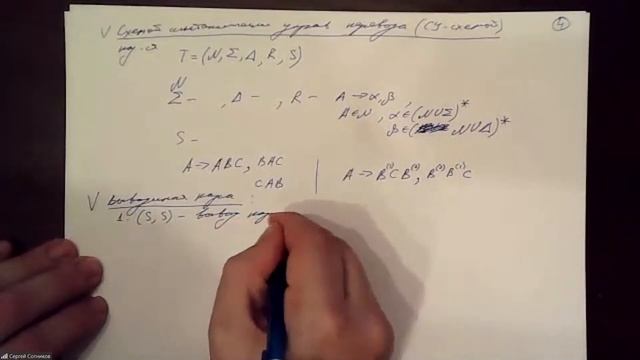 √ Схемой синтаксически управ. перевода (СУ-схемой) ④
наз-ся T = (N, Σ, Δ, R, S)
N
Σ - , Δ - , R - A → α, β,
A ∈ N, α ∈ (N ∪ Σ)*
β ∈ ( N ∪ Δ)*
S -
A → ABC, BAC
CAB
A → B⁽¹⁾CB⁽²⁾, B⁽²⁾B⁽¹⁾C
√ Выводимая пара :
1. (S, S) -
Сергей Сотников